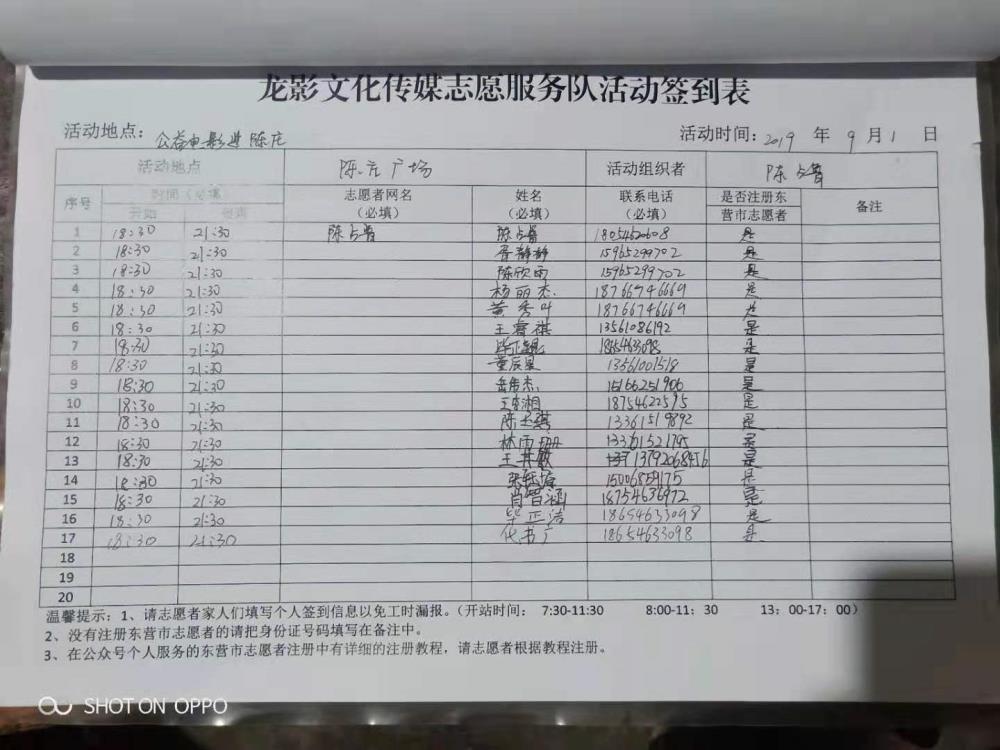 龙影文化传媒志愿服务队活动签到表
活动地点：公益电影进陈庄 活动时间：2019 年 9 月 1 日
活动地点 陈庄广场 活动组织者 陈占普
序号 时间（必填） 志愿者网名（必填） 姓名（必填） 联系电话（必填） 是否注册东营市志愿者 备注
开始 结束
1 18:30 21:30 陈占普 陈占普 是
2 18:30 21:30 胥静静 15965299702 是
3 18:30 21:30 陈欣雨 15965299702 是
4 18:30 21:30 杨丽杰 18766746669 是
5 18:30 21:30 黄秀叶 18766746669 是
6 18:30 21:30 王睿祺 13561086192 是
7 18:30 21:30 是
8 18:30 21:30 董辰星 13561001518 是
9 18:30 21:30 岳伟杰 15166251906 是
10 18:30 21:30 18754622595 是
11 18:30 21:30 13361519892 是
12 18:30 21:30 林雨册 13361521795 是
13 18:30 21:30 13792068456 是
14 18:30 21:30 15006859175 是
15 18:30 21:30 肖智涵 18754636972 是
16 18:30 21:30 毕正洁 18654633098 是
17 18:30 21:30 18654633098 是
18
19
20
温馨提示：1、请志愿者家人们填写个人签到信息以免工时漏报。（开站时间： 7:30-11:30 8:00-11：30 13：00-17：00）
2、没有注册东营市志愿者的请把身份证号码填写在备注中。
3、在公众号个人服务的东营市志愿者注册中有详细的注册教程，请志愿者根据教程注册。
SHOT ON OPPO